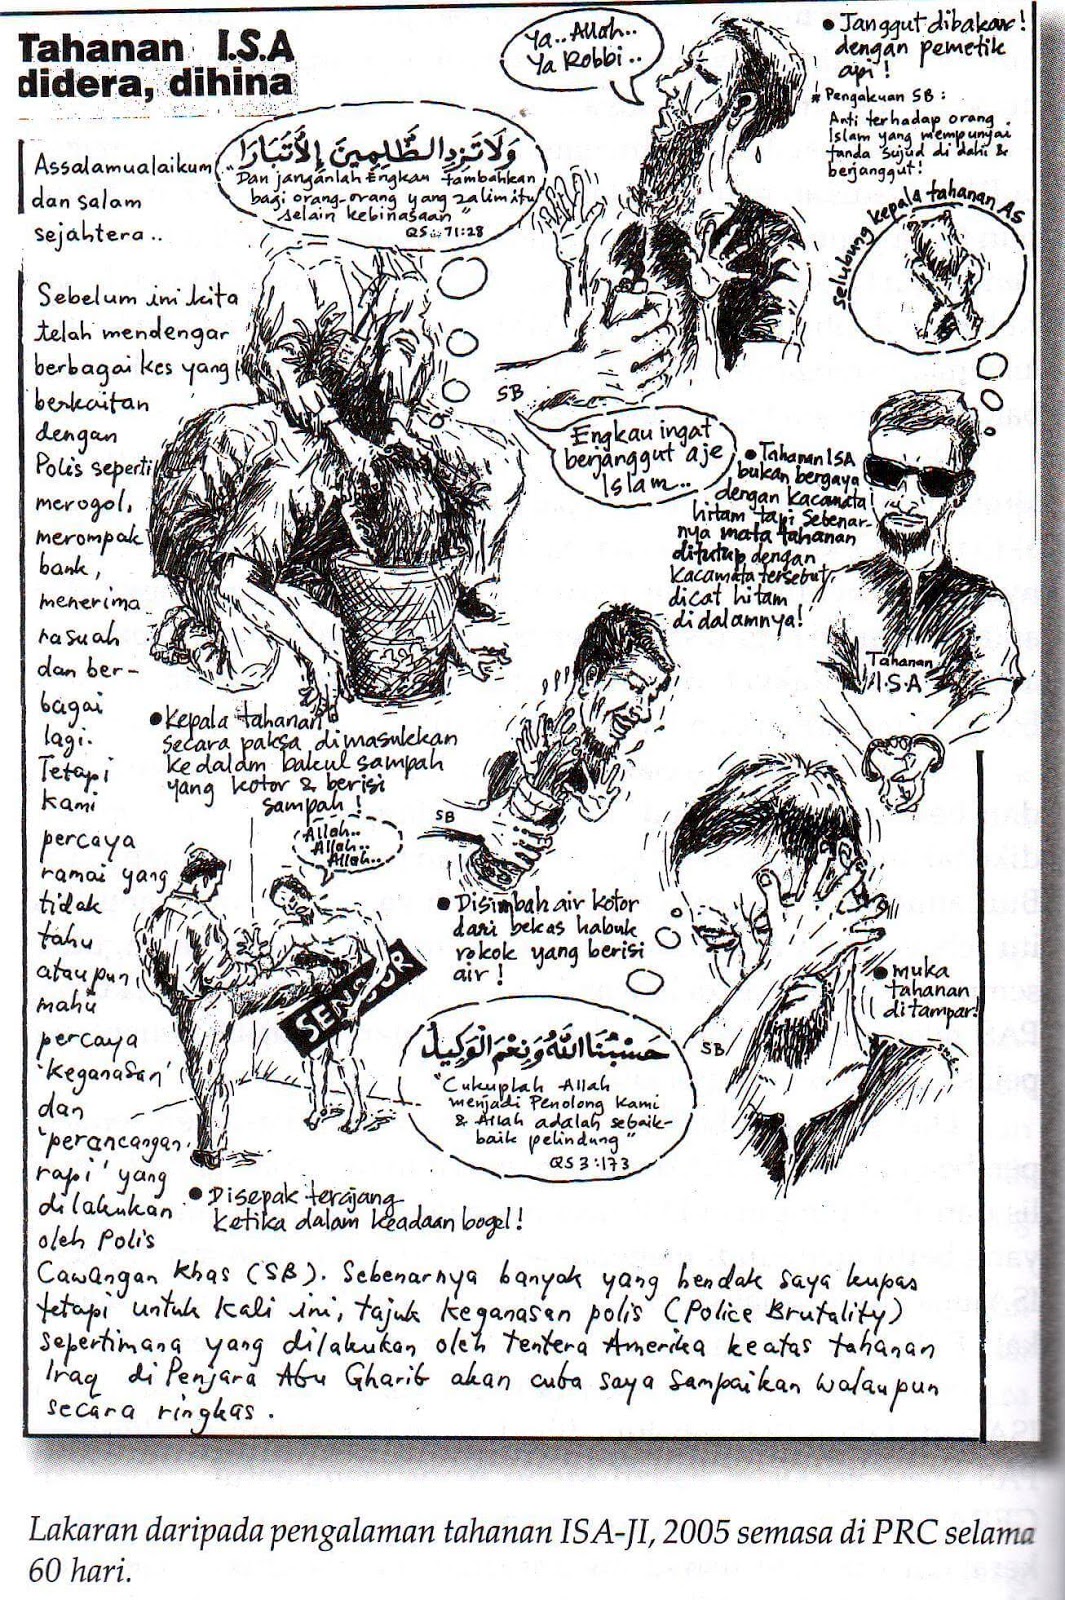 Tahanan I.S.A
didera, dihina
Assalamualaikum
dan salam
sejahtera..
Sebelum ini kita
telah mendengar
berbagai kes yang
berkaitan
dengan
Polis seperti
merogol,
merompak
bank,
menerima
rasuah
dan ber-
bagai
lagi.
Tetapi
kami
percaya
ramai yang
tidak
tahu
ataupun
mahu
percaya
'keganasan'
dan
'perancangan
rapi' yang
dilakukan
oleh Polis
Cawangan Khas (SB). Sebenarnya banyak yang hendak saya kupas
tetapi untuk kali ini, tajuk keganasan polis (Police Brutality)
sepertimana yang dilakukan oleh tentera Amerika keatas tahanan
Iraq di Penjara Abu Gharib akan cuba saya sampaikan walaupun
secara ringkas.
وَلَا تَزِدِ الظَّلِمِينَ إِلَّا تَبَارًا
"Dan janganlah Engkau tambahkan
bagi orang-orang yang zalim itu
selain kebinasaan"
QS. 71:28
• Kepala tahanan
secara paksa dimasukkan
ke dalam bakul sampah
yang kotor & berisi
sampah!
Ya.. Allah..
Ya Robbi..
SB
Engkau ingat
berjanggut aje
Islam..
• Janggut dibakar!
dengan pemetik
api!
* Pengakuan SB:
Anti terhadap orang
Islam yang mempunyai
tanda sujud di dahi &
berjanggut!
selubung kepala tahanan AS
• Tahanan ISA
bukan bergaya
dengan kacamata
hitam tapi Sebenar-
nya mata tahanan
ditutup dengan
kacamata tersebut,
dicat hitam
didalamnya!
Tahanan
I.S.A
SB
• Disimbah air kotor
dari bekas habuk
rokok yang berisi
air!
Allah..
Allah..
Allah..
SENSOR
• Disepak terajang
ketika dalam keadaan bogel!
• muka
tahanan
ditampar!
SB
حَسْبُنَا اللَّهُ وَنِعْمَ الْوَكِيلُ
"Cukuplah Allah
menjadi Penolong Kami
& Allah adalah sebaik-
baik pelindung"
QS 3:173
Lakaran daripada pengalaman tahanan ISA-JI, 2005 semasa di PRC selama
60 hari.